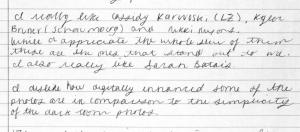 I really like Cassidy (LZ), Kyler
Bruner (Schaumberg) and Nikki Lyons.
While I appreciate the whole slew of them
these are the ones that stand out to me.
I also really like Sarah
I dislike how digitally enhanced some of the
photos are in comparison to the simplicity
of the dark room photos.